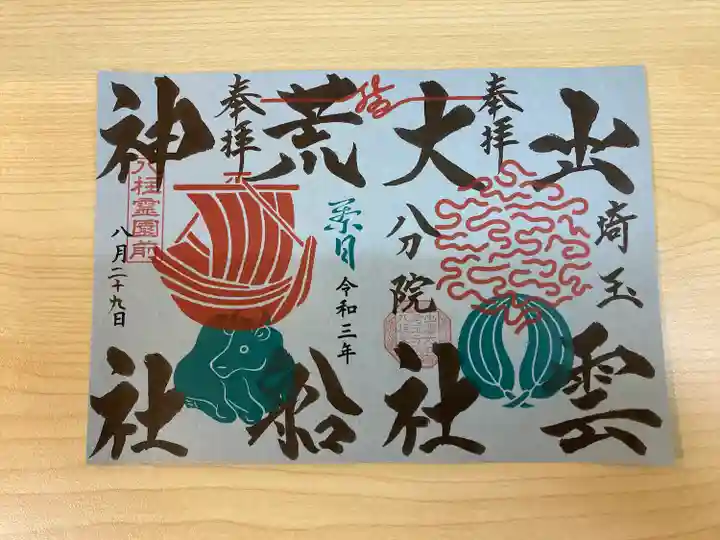 出雲
埼玉
奉拝
大社
八分院
荒船
葉月
令和三年
奉拝
神社
八柱霊園前
八月二十九日